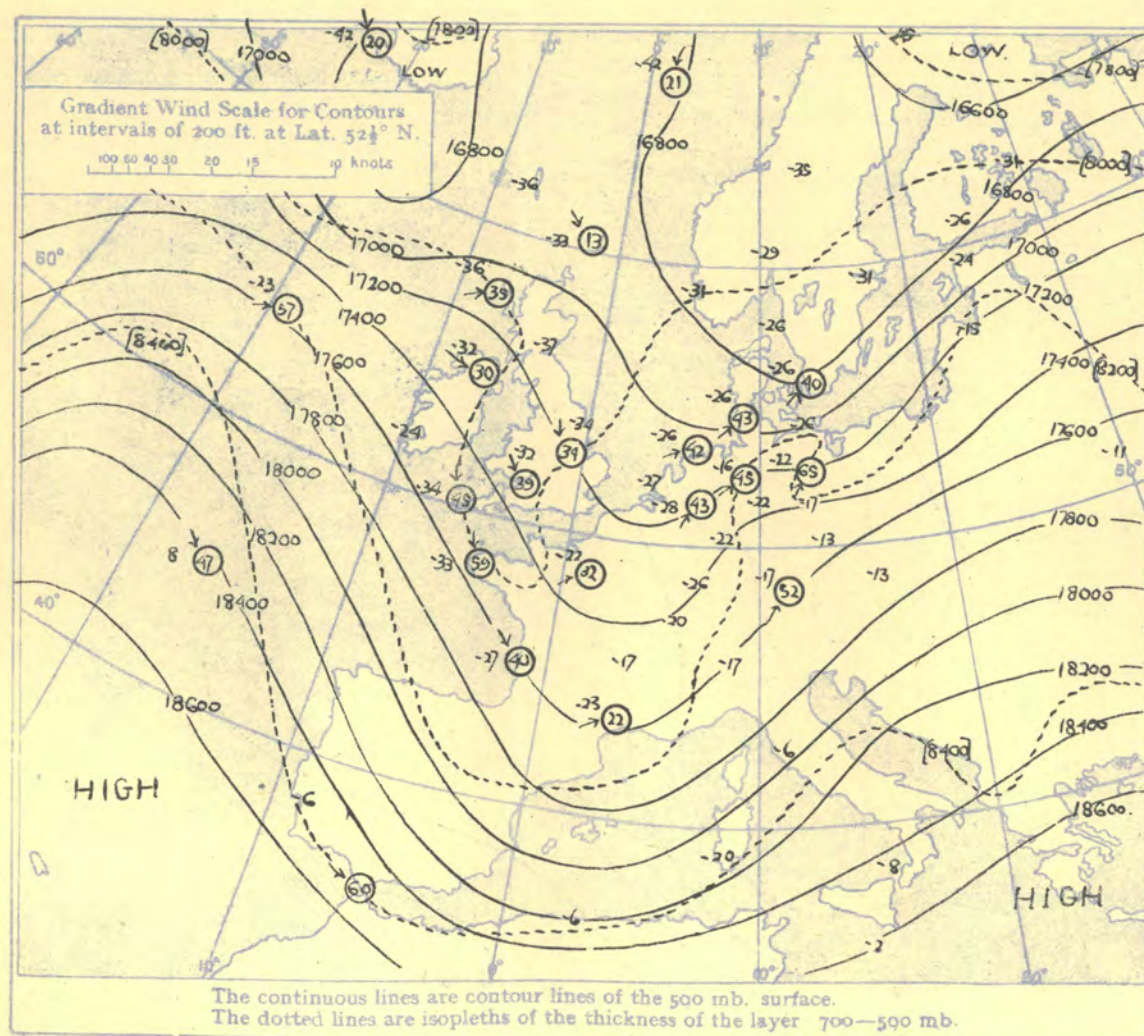 [8000]
17000
-42
20
[7800]
LOW
-42
21
LOW
[7800]
16600
Gradient Wind Scale for Contours
at intervals of 200 ft. at Lat. 52½° N.
100 60 40 30 20 15 10 knots
16800
16800
-36
-35
-31
[8000]
16800
-33
13
-29
-26
17000
-24
50°
17000
-36
17200
-31
-31
17200
-23
57
17400
-37
-26
-15
[8400]
17600
-32
30
-26
40
17400
[8200]
17800
-24
-34
-26
43
-26
17600
-11
18000
-32
39
-26
42
-16
45
-22
65
-34
-27
-28
43
-22
-17
50°
17800
18200
-33
59
-22
32
-22
-13
8
47
-26
-17
52
-13
18000
40°
18400
-20
-27
40
-17
-17
18200
18600
-23
22
18400
-6
[8400]
HIGH
-6
18600
-20
-8
HIGH
60
-6
-2
10°
0°
10°
20°
The continuous lines are contour lines of the 500 mb. surface.
The dotted lines are isopleths of the thickness of the layer 700—500 mb.